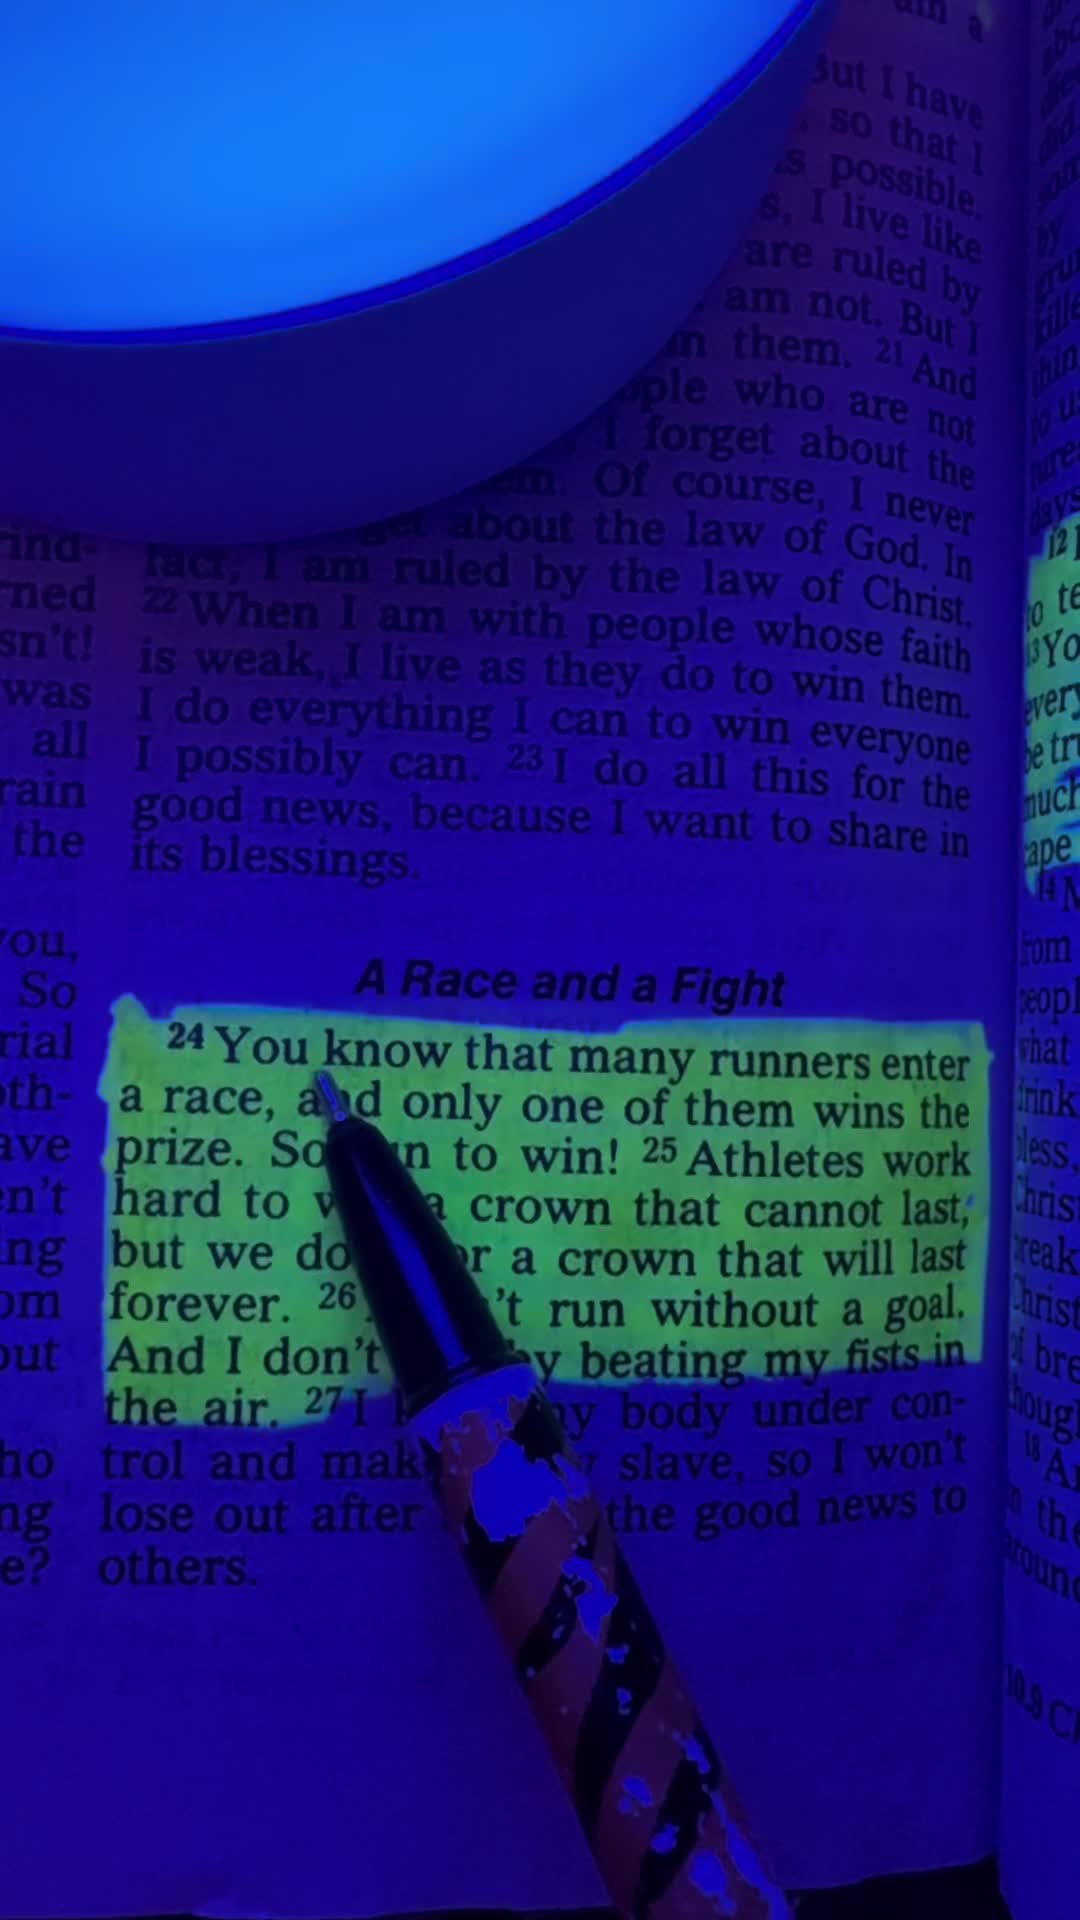 am a
But I have
so that I
possible.
s, I live like
are ruled by
am not. But I
in them. 21 And
who are not
I forget about the
Of course, I never
about the law of God. In
fact, I am ruled by the law of Christ.
22 When I am with people whose faith
is weak, I live as they do to win them.
I do everything I can to win everyone
I possibly can. 23 I do all this for the
good news, because I want to share in
its blessings.
A Race and a Fight
24 You know that many runners enter
a race, and only one of them wins the
prize. So n to win! 25 Athletes work
hard to a crown that cannot last,
but we do or a crown that will last
forever. 26 't run without a goal.
And I don't by beating my fists in
the air. 27 I my body under con-
trol and mak slave, so I won't
lose out after the good news to
others.
sn't!
was
all
rain
the
you,
So
rial
oth-
ave
en't
ing
om
out
ho
ng
e?
12
to te
13 Yo
every
be tru
much
cape
14 M
from
peopl
what
drink
bless,
Christ
break
Christ
of bre
though
18 A
the
around
10.8